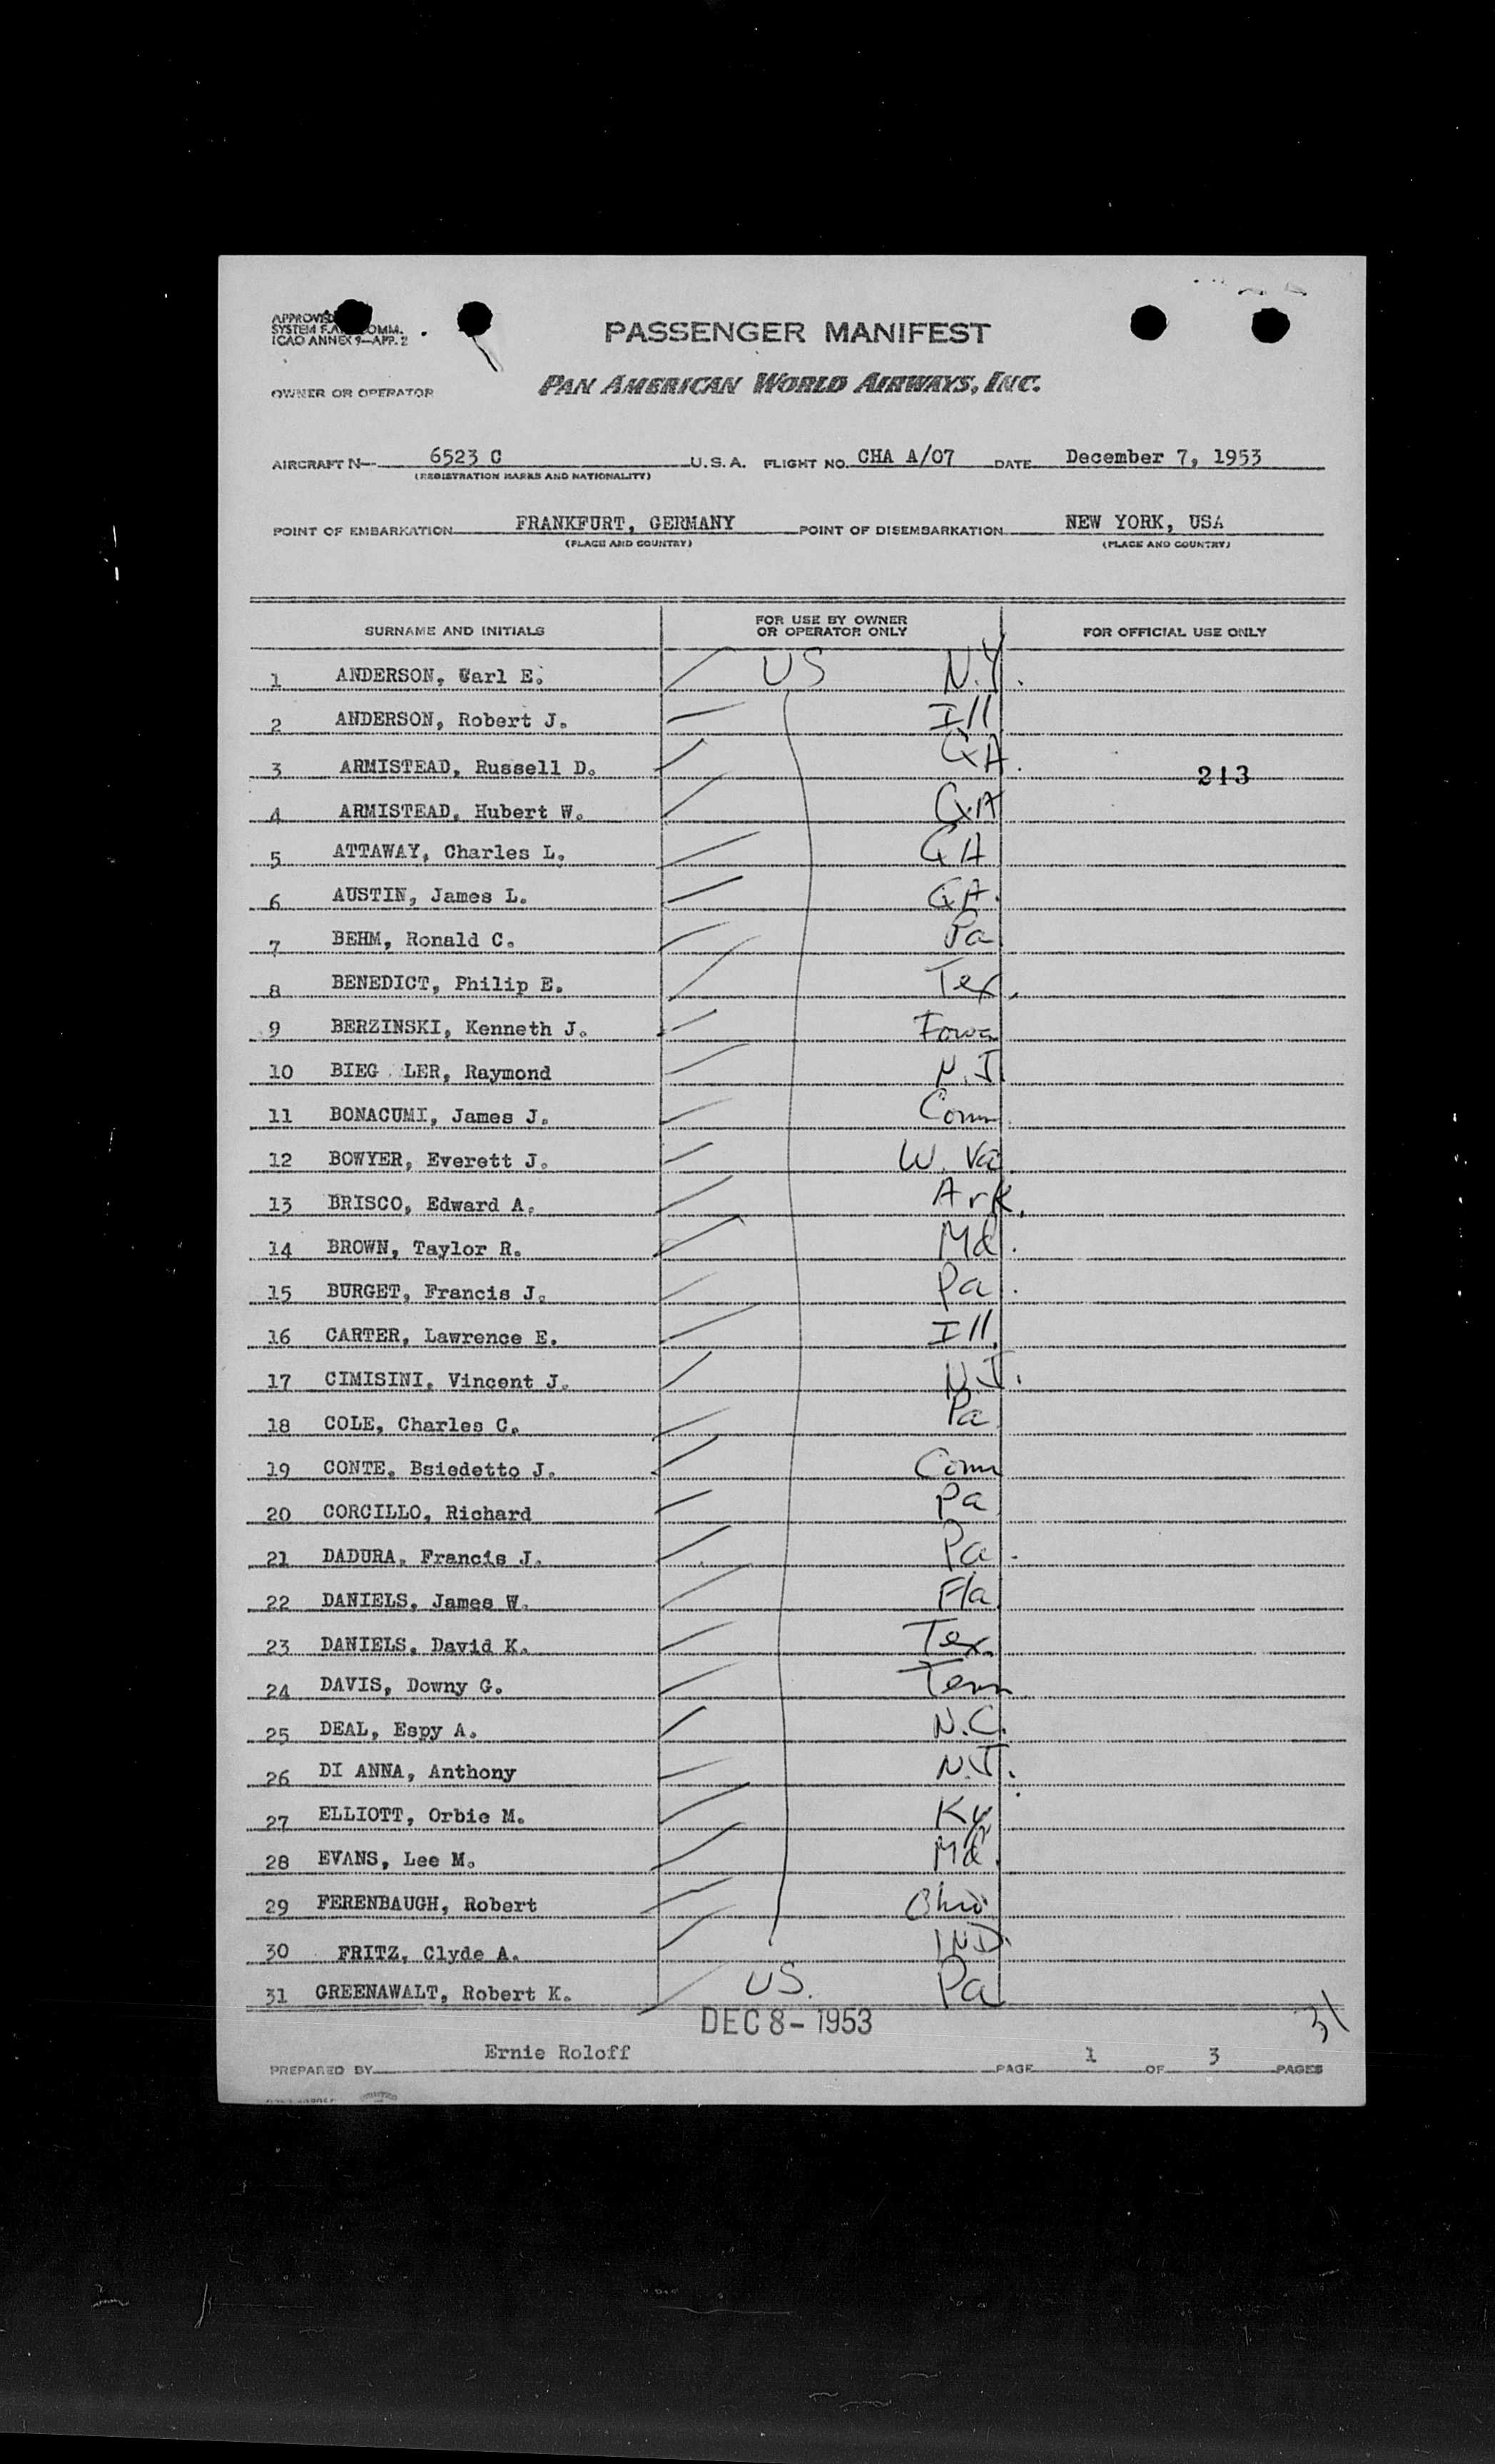 APPROVED
SYSTEM F.A. COMM.
ICAO ANNEX 9—APP. 2
PASSENGER MANIFEST
OWNER OR OPERATOR PAN AMERICAN WORLD AIRWAYS, INC.
AIRCRAFT N— 6523 C U.S.A. FLIGHT NO. CHA A/07 DATE December 7, 1953
(REGISTRATION MARKS AND NATIONALITY)
POINT OF EMBARKATION FRANKFURT, GERMANY POINT OF DISEMBARKATION NEW YORK, USA
(PLACE AND COUNTRY) (PLACE AND COUNTRY)
SURNAME AND INITIALS FOR USE BY OWNER OR OPERATOR ONLY FOR OFFICIAL USE ONLY
1 ANDERSON, Carl E. US N.Y.
2 ANDERSON, Robert J. Ill
3 ARMISTEAD, Russell D. GA. 213
4 ARMISTEAD, Hubert W. GA
5 ATTAWAY, Charles L. GA
6 AUSTIN, James L. GA.
7 BEHM, Ronald C. Pa
8 BENEDICT, Philip E. Tex.
9 BERZINSKI, Kenneth J. Iowa
10 BIEG LER, Raymond N.J.
11 BONACUMI, James J. Conn.
12 BOWYER, Everett J. W. Va.
13 BRISCO, Edward A. Ark.
14 BROWN, Taylor R. Md.
15 BURGET, Francis J. Pa.
16 CARTER, Lawrence E. Ill.
17 CIMISINI, Vincent J. N.J.
18 COLE, Charles C. Pa
19 CONTE, Bsiedetto J. Conn
20 CORCILLO, Richard Pa
21 DADURA, Francis J. Pa.
22 DANIELS, James W. Fla
23 DANIELS, David K. Tex.
24 DAVIS, Downy G. Tenn
25 DEAL, Espy A. N.C.
26 DI ANNA, Anthony N.J.
27 ELLIOTT, Orbie M. Ky
28 EVANS, Lee M. Md.
29 FERENBAUGH, Robert Ohio
30 FRITZ, Clyde A. IND.
31 GREENAWALT, Robert K. US. Pa
DEC 8- 1953 31
PREPARED BY Ernie Roloff PAGE 1 OF 3 PAGES